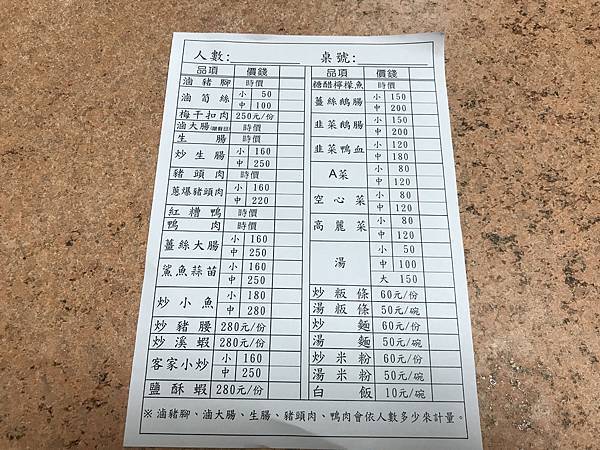 人數:
桌號:
品項 價錢
滷豬腳 時價
滷筍絲 小 50
中 100
梅干扣肉 250元/份
滷大腸 時價
生腸 時價
炒生腸 小 160
中 250
豬頭肉 時價
蔥爆豬頭肉 小 160
中 220
紅糟鴨 時價
鴨肉 時價
薑絲大腸 小 160
中 250
鯊魚蒜苗 小 160
中 250
炒小魚 小 180
中 280
炒豬腰 280元/份
炒溪蝦 280元/份
客家小炒 小 160
中 250
鹽酥蝦 280元/份
品項 價錢
糖醋檸檬魚 時價
薑絲鵝腸 小 150
中 200
韭菜鵝腸 小 150
中 200
韭菜鴨血 小 120
中 180
A菜 小 80
中 120
空心菜 小 80
中 120
高麗菜 小 80
中 120
湯 小 50
中 100
大 150
炒粄條 60元/份
湯粄條 50元/碗
炒麵 60元/份
湯麵 50元/碗
炒米粉 60元/份
湯米粉 50元/碗
白飯 10元/碗
※滷豬腳、滷大腸、生腸、豬頭肉、鴨肉會依人數多少來計量。